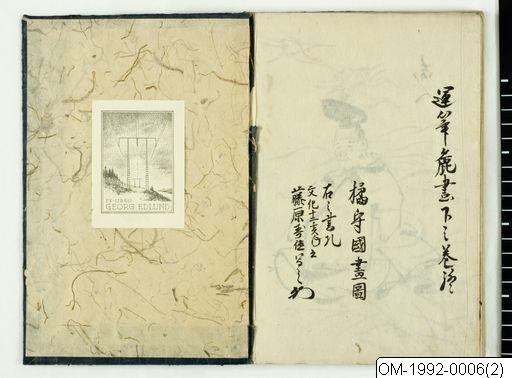 EX LIBRIS
GEORG EDLUND
運筆麁畫下之巻終
橘守國畫圖
右之
文化十二亥年
藤原
OM-1992-0006(2)